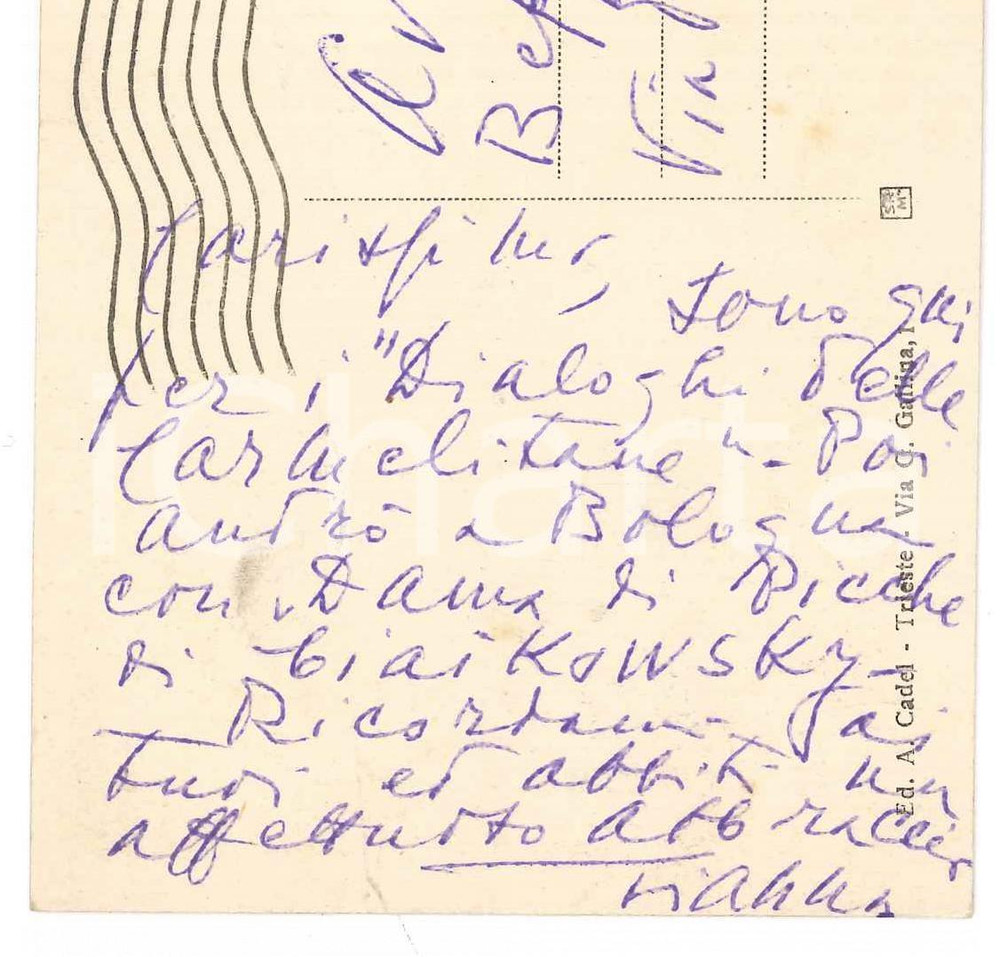 Via
Carissimo,
sono qui
per i "Dialoghi delle
Carmelitane" - Poi
andrò a Bologna
con "Dama di Picche
di Ciaikowsky -
- Ricordami ai
tuoi ed abbiti un
affettuoso abbraccio
Ed. A. Cadel - Trieste - Via G. Gallina, 1
SAR
M
iCharta